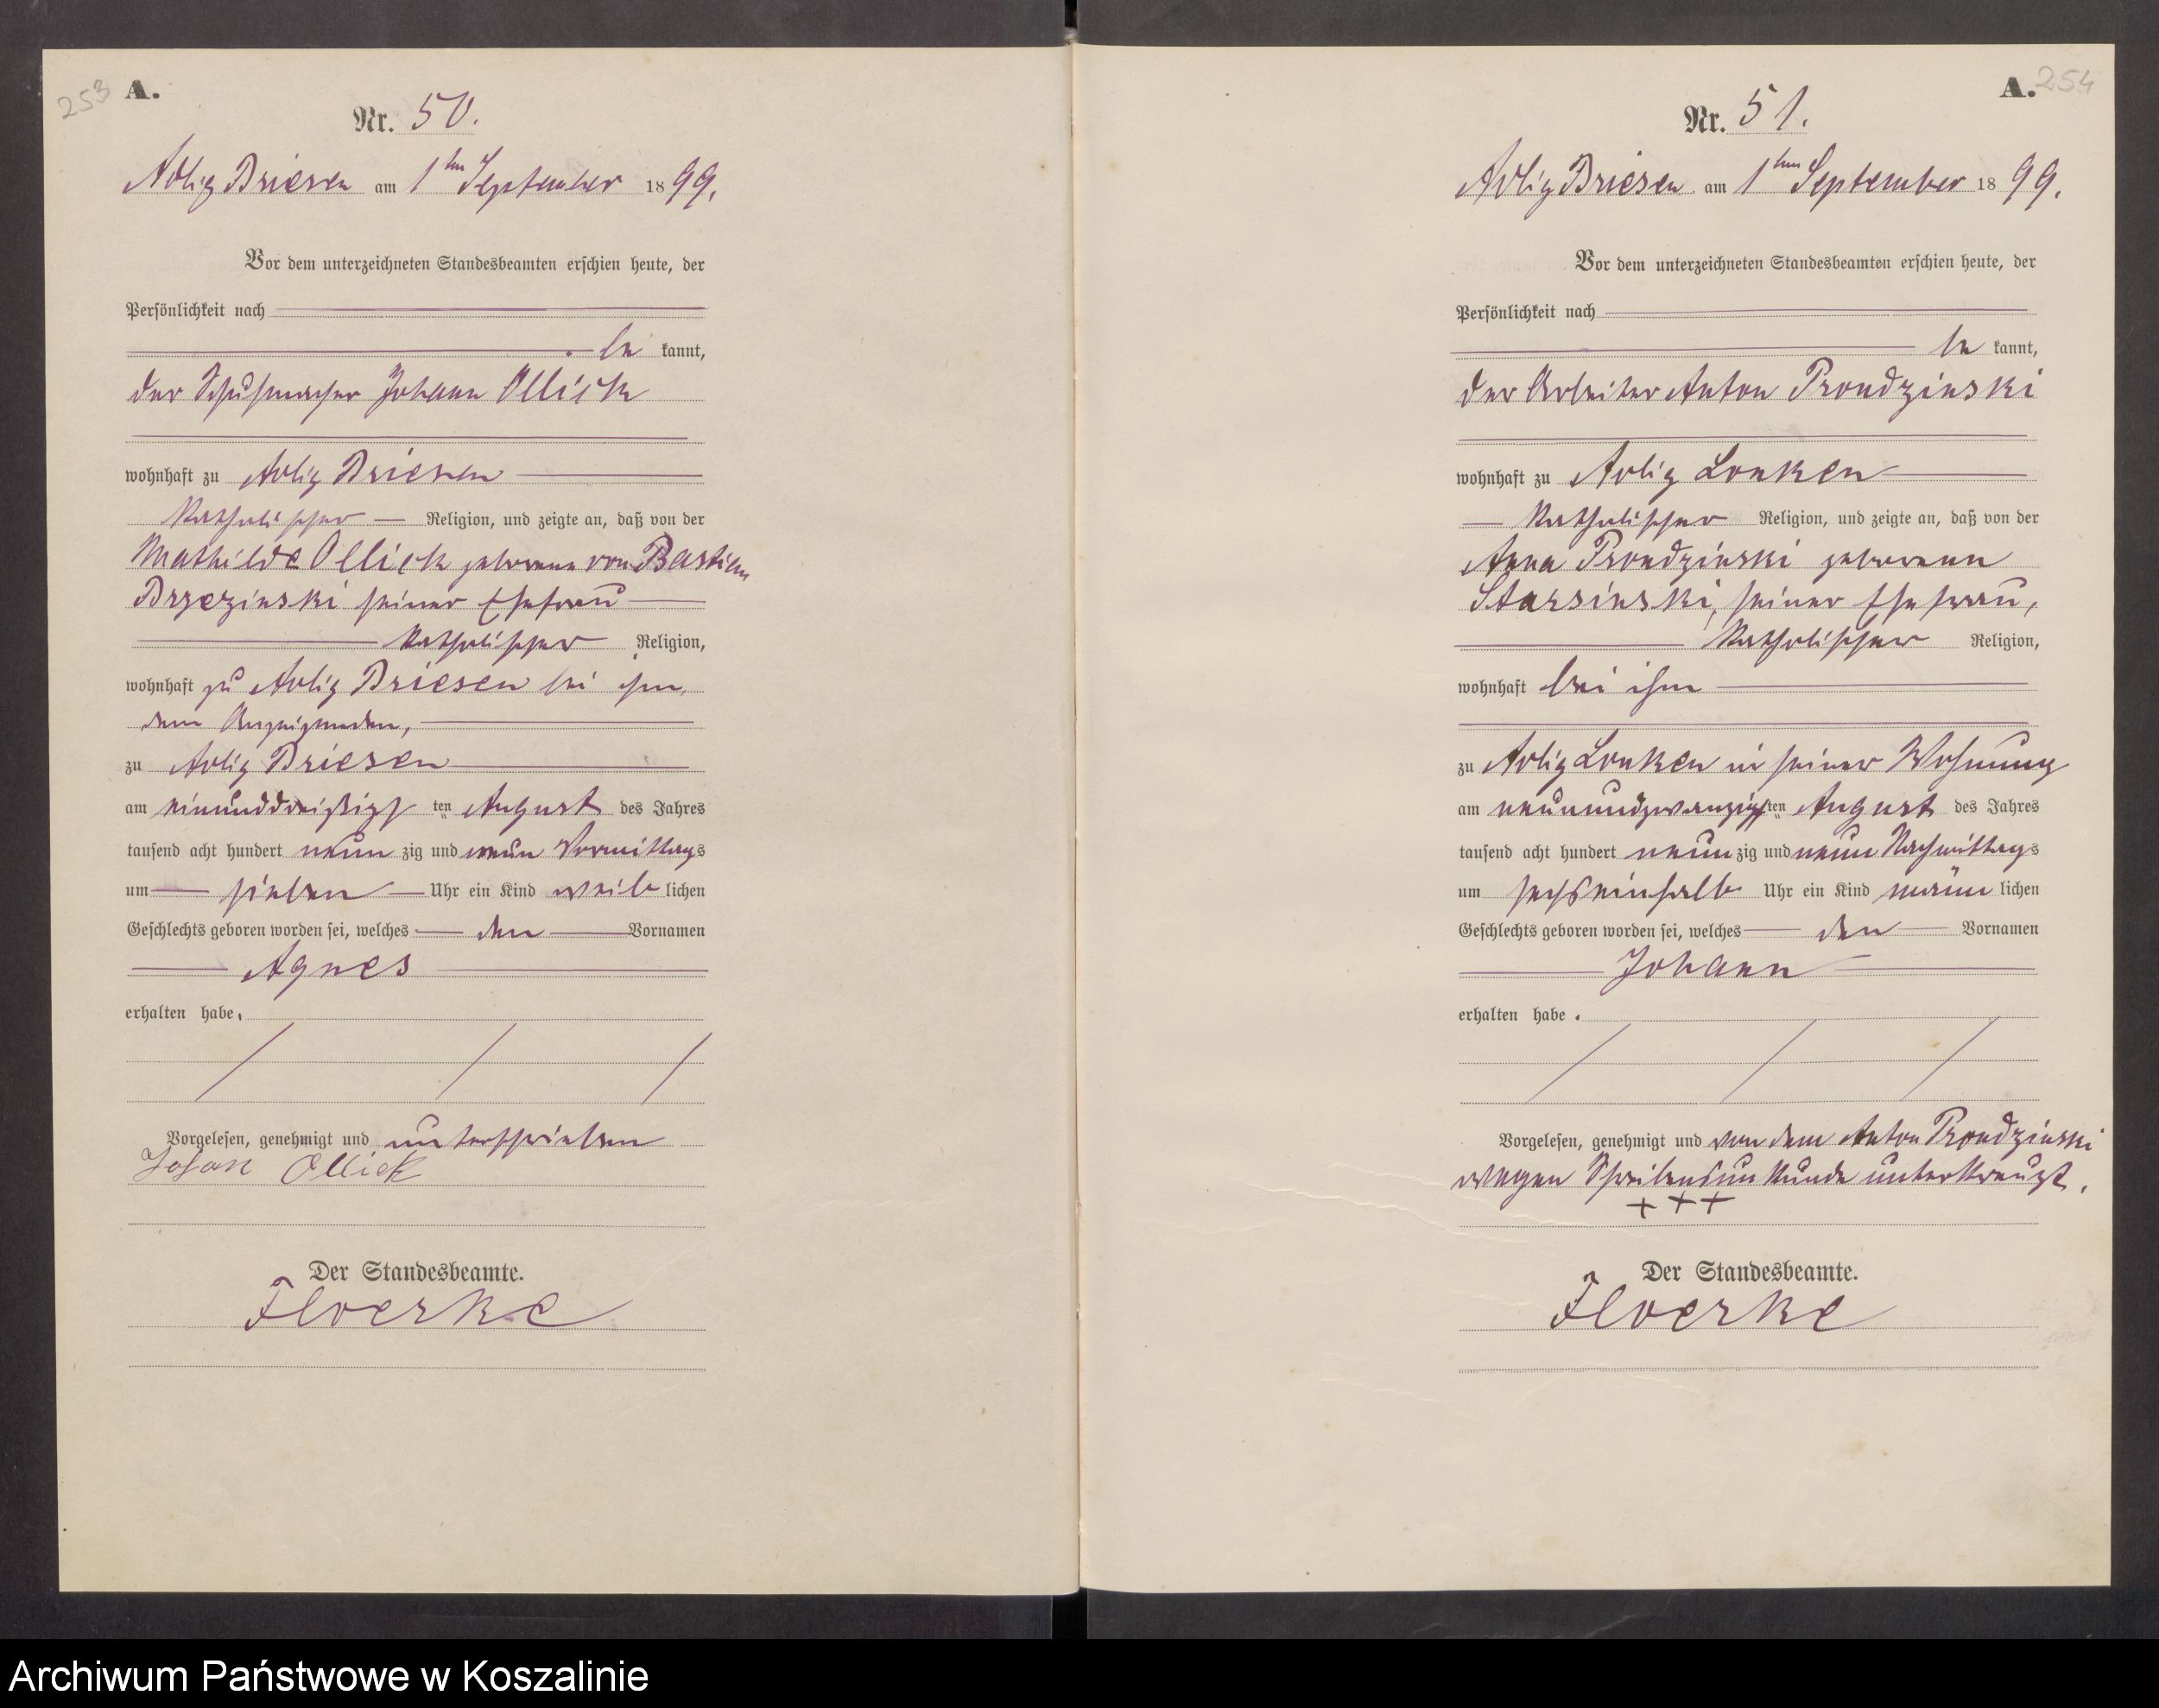 253
A.
Nr. 50.
Adlig Briesen am 1ten September 1899.
Vor dem unterzeichneten Standesbeamten erschien heute, der
Persönlichkeit nach
be kannt,
der Schuhmacher Johann Ollick
wohnhaft zu Adlig Briesen
katholischer Religion, und zeigte an, daß von der
Mathilde Ollick geborene von Bastian
Brzezinski seiner Ehefrau
katholischer Religion,
wohnhaft zu Adlig Briesen bei ihm,
dem Anzeigenden,
zu Adlig Briesen
am einunddreißigsten August des Jahres
tausend acht hundert neun zig und neun Vormittags
um sieben Uhr ein Kind weib lichen
Geschlechts geboren worden sei, welches den Vornamen
Agnes
erhalten habe.
Vorgelesen, genehmigt und unterschrieben
Johan Ollick
Der Standesbeamte.
Floerke
A. 254
Nr. 51.
Adlig Briesen am 1ten September 1899.
Vor dem unterzeichneten Standesbeamten erschien heute, der
Persönlichkeit nach
be kannt,
der Arbeiter Anton Prondzinski
wohnhaft zu Adlig Lonken
katholischer Religion, und zeigte an, daß von der
Anna Prondzinski geborenen
Starsinski, seiner Ehefrau,
katholischer Religion,
wohnhaft bei ihm
zu Adlig Lonken in seiner Wohnung
am neunundzwanzigsten August des Jahres
tausend acht hundert neun zig und neun Nachmittags
um sechseinhalb Uhr ein Kind männ lichen
Geschlechts geboren worden sei, welches den Vornamen
Johann
erhalten habe.
Vorgelesen, genehmigt und von dem Anton Prondzinski
wegen Schreibensunkunde unterkreuzt.
+ + +
Der Standesbeamte.
Floerke
Archiwum Państwowe w Koszalinie